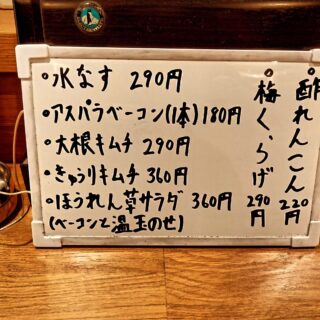 ・水なす 290円
・アスパラベーコン(1本)180円
・大根キムチ 290円
・きゅうりキムチ 360円
・ほうれん草サラダ 360円
(ベーコンと温玉のせ)
・酢れんこん 220円
・梅くらげ 290円